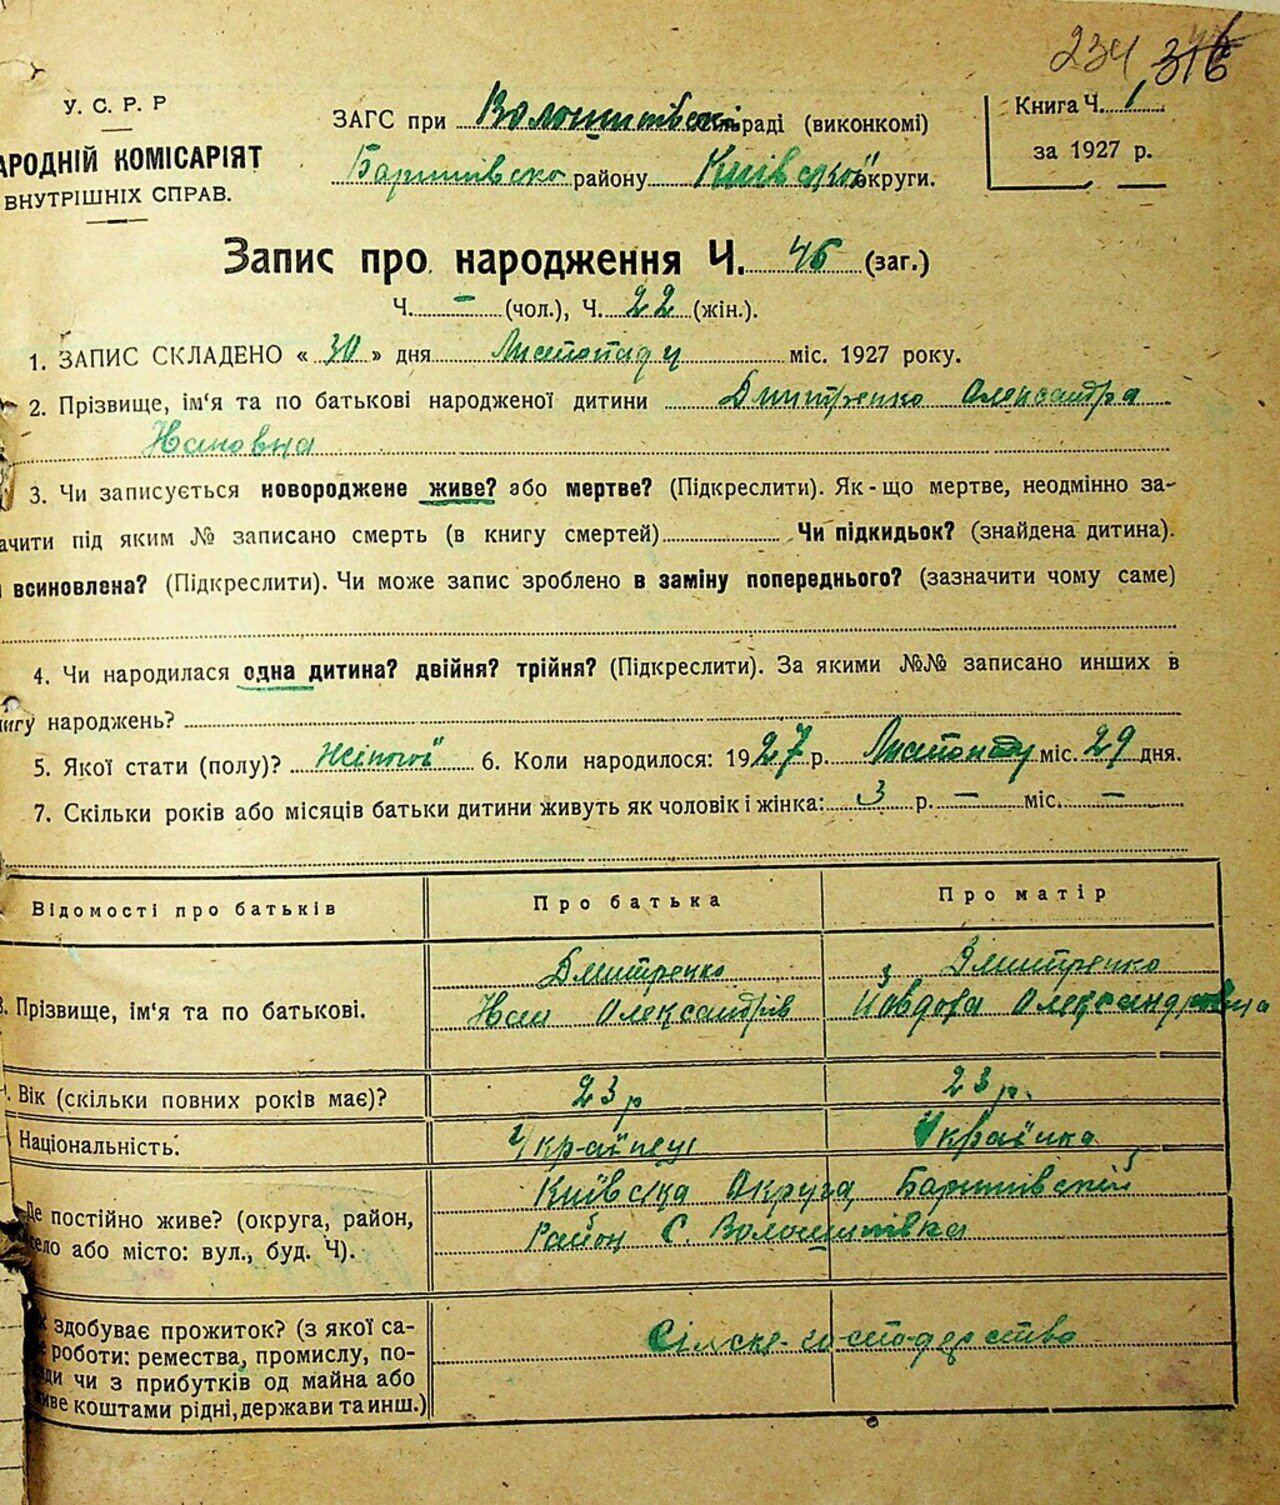 234 316
У. С. Р. Р
АРОДНІЙ КОМІСАРІЯТ
ВНУТРІШНІХ СПРАВ.
ЗАГС при раді (виконкомі)
району Київської округи.
Книга Ч. 1
за 1927 р.
Запис про народження Ч. 46 (заг.)
Ч. – (чол.), Ч. 22 (жін.).
1. ЗАПИС СКЛАДЕНО « 30 » дня Листопаду міс. 1927 року.
2. Прізвище, ім'я та по батькові народженої дитини Дмитренко Олександра
3. Чи записується новороджене живе? або мертве? (Підкреслити). Як-що мертве, неодмінно за-
ачити під яким № записано смерть (в книгу смертей) Чи підкидьок? (знайдена дитина).
всиновлена? (Підкреслити). Чи може запис зроблено в заміну попереднього? (зазначити чому саме)
4. Чи народилася одна дитина? двійня? трійня? (Підкреслити). За якими №№ записано инших в
игу народжень?
5. Якої стати (полу)? Жіночої 6. Коли народилося: 1927 р. Листопаду міс. 29 дня.
7. Скільки років або місяців батьки дитини живуть як чоловік і жінка: 3 р. – міс. –
Відомості про батьків Про батька Про матір
Дмитренко Дмитренко
8. Прізвище, ім'я та по батькові. Олександрів Олександровна
Вік (скільки повних років має)? 23 р 23 р.
Національність. Українець Українка
Київська Округа, Баришівский
Де постійно живе? (округа, район, Район С. Волошинівка
село або місто: вул., буд. Ч).
здобуває прожиток? (з якої са- Сільске-господарство
роботи: ремества, промислу, по-
ди чи з прибутків од майна або
иве коштами рідні, держави та инш.)